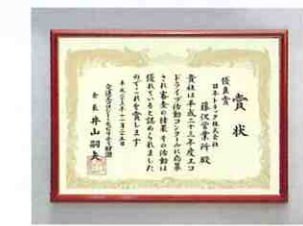 賞状
優良賞
日本トラック株式会社
藤沢営業所殿
貴社は平成二十三年度エコ
ドライブ活動コンクールに応募
され審査の結果その活動は
優れていると認められました
ので これを賞します
平成二十三年十一月二十五日
会長 井山嗣夫